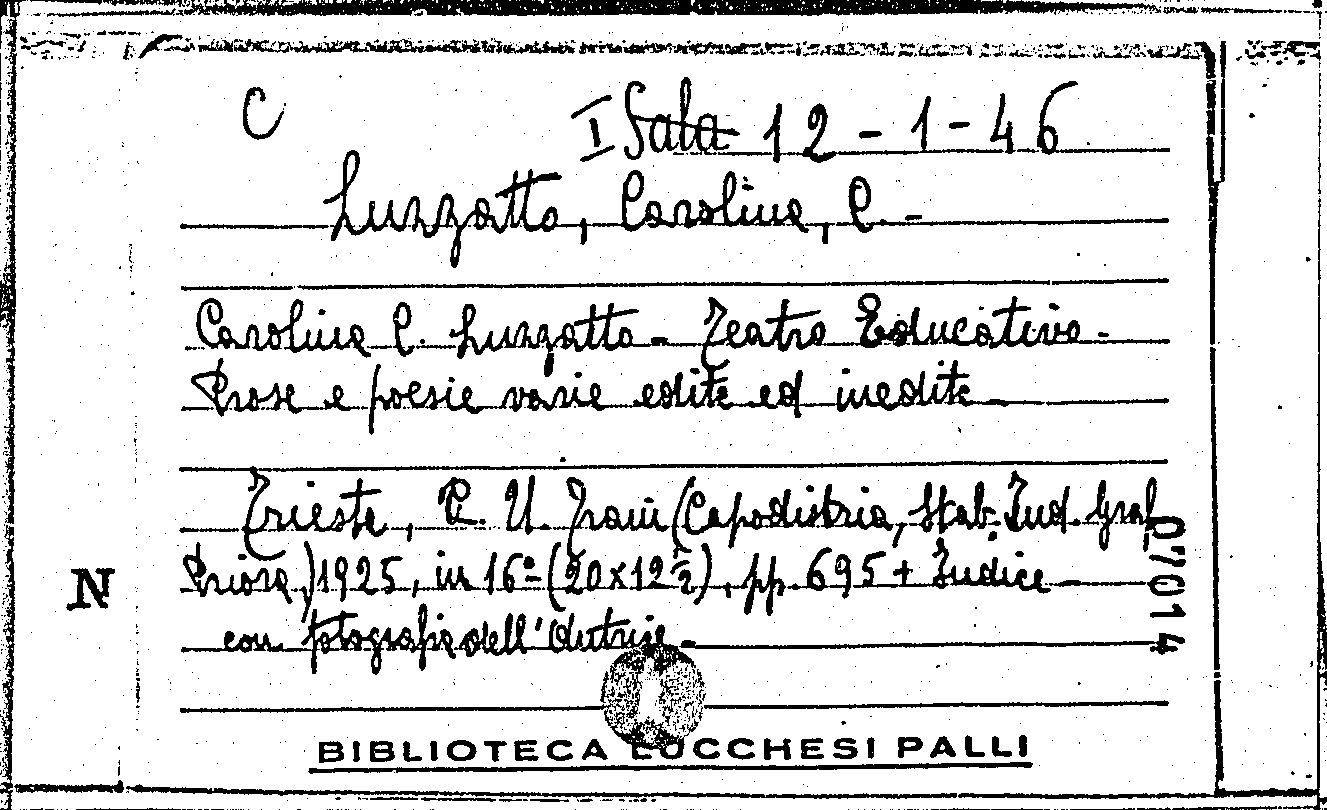 C
I Sala 12-1-46
Luzzatto, Carolina, C. -
Carolina C. Luzzatto - Teatro Educativo -
Prose e poesie varie edite ed inedite -
Trieste, C. U. Trani (Capodistria, Stab. Ind. Graf.
Priora) 1925, in 16º - (20x12½), pp. 695 + Indice -
con fotografia dell'Autrice -
N
07014
BIBLIOTECA LUCCHESI PALLI